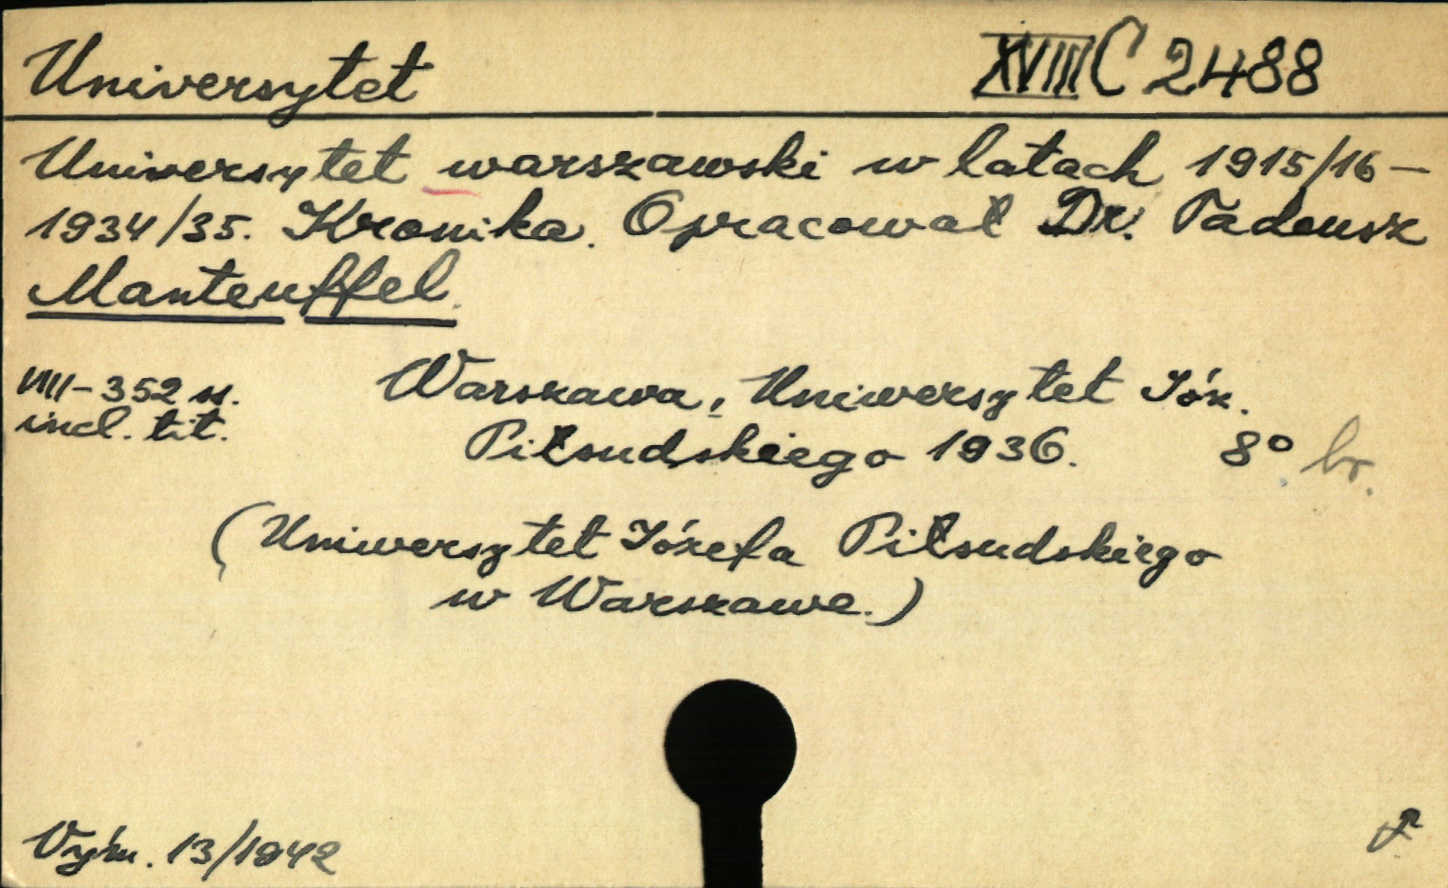 Universytet XVIII C 2488
Universytet warszawski w latach 1915/16 –
1934/35. Kronika. Opracował Dr. Tadeusz
Manteuffel.
VIII – 352 ss. Warszawa, Uniwersytet Józ.
incl. tit. Piłsudskiego 1936. 8° br.
(Uniwersytet Józefa Piłsudskiego
w Warszawe.)
Vým. 13/1942